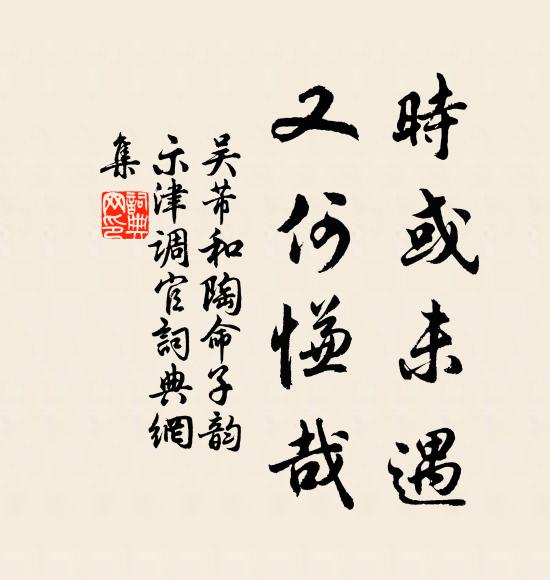 時或未遇
又何慊哉
吴芾和陶命子韵
示津调官詞典網
集
詞典
网印